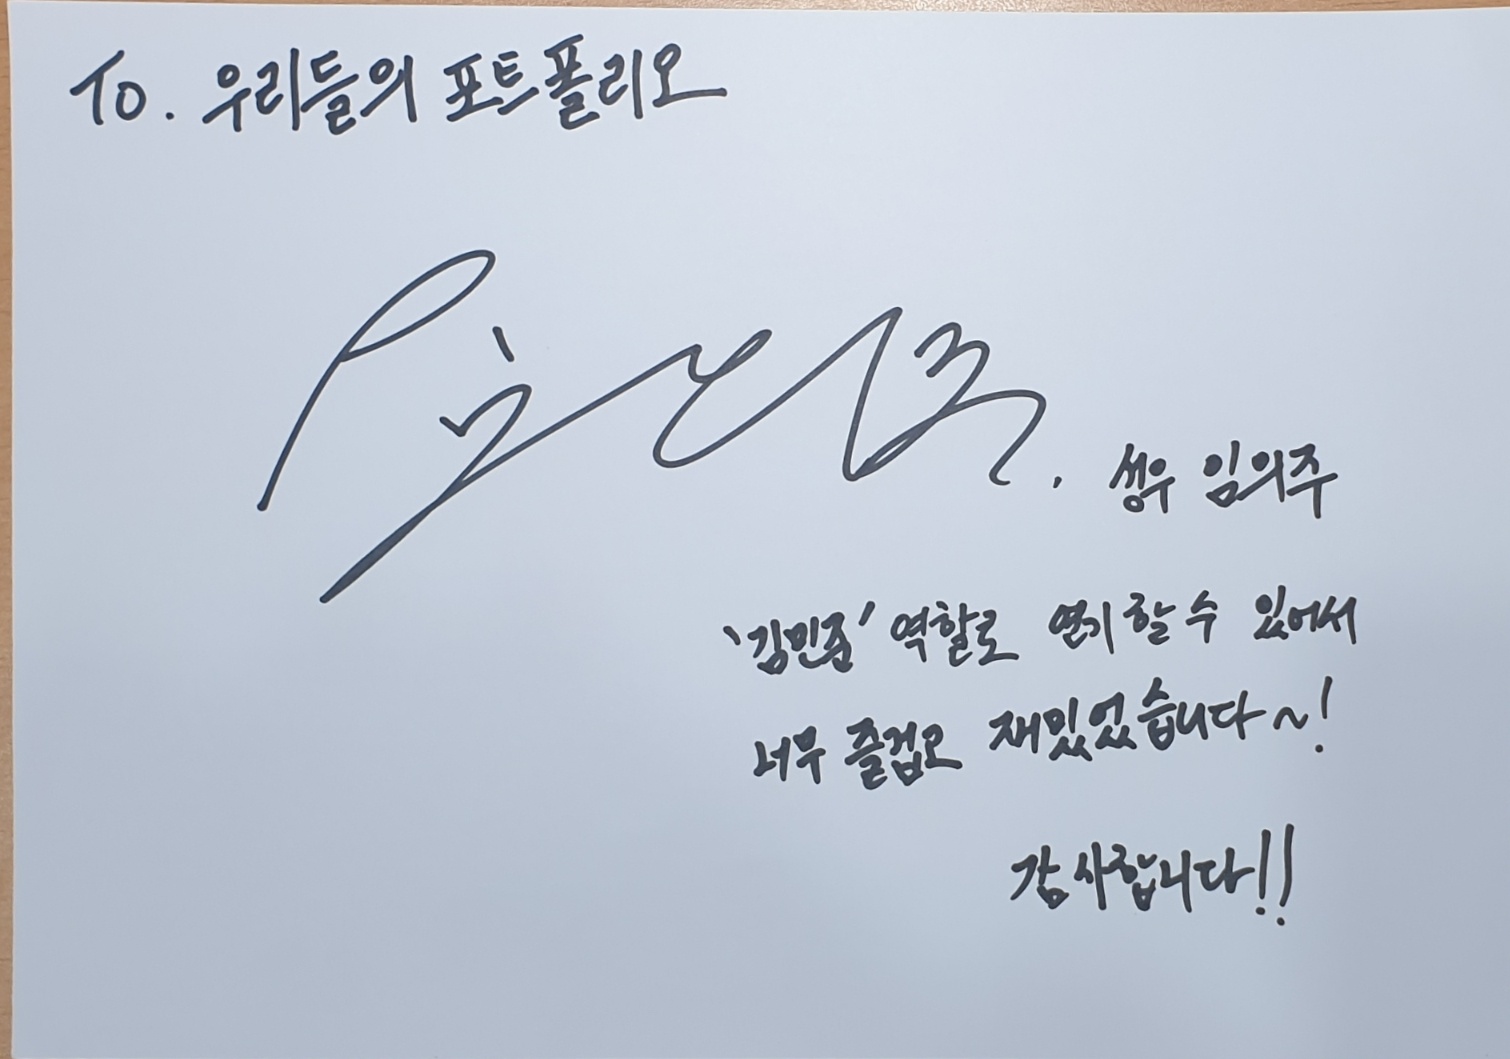 To. 우리들의 포트폴리오
성우 임의주
'김민준' 역할로 연기할 수 있어서
너무 즐겁고 재밌었습니다~!
감사합니다!!